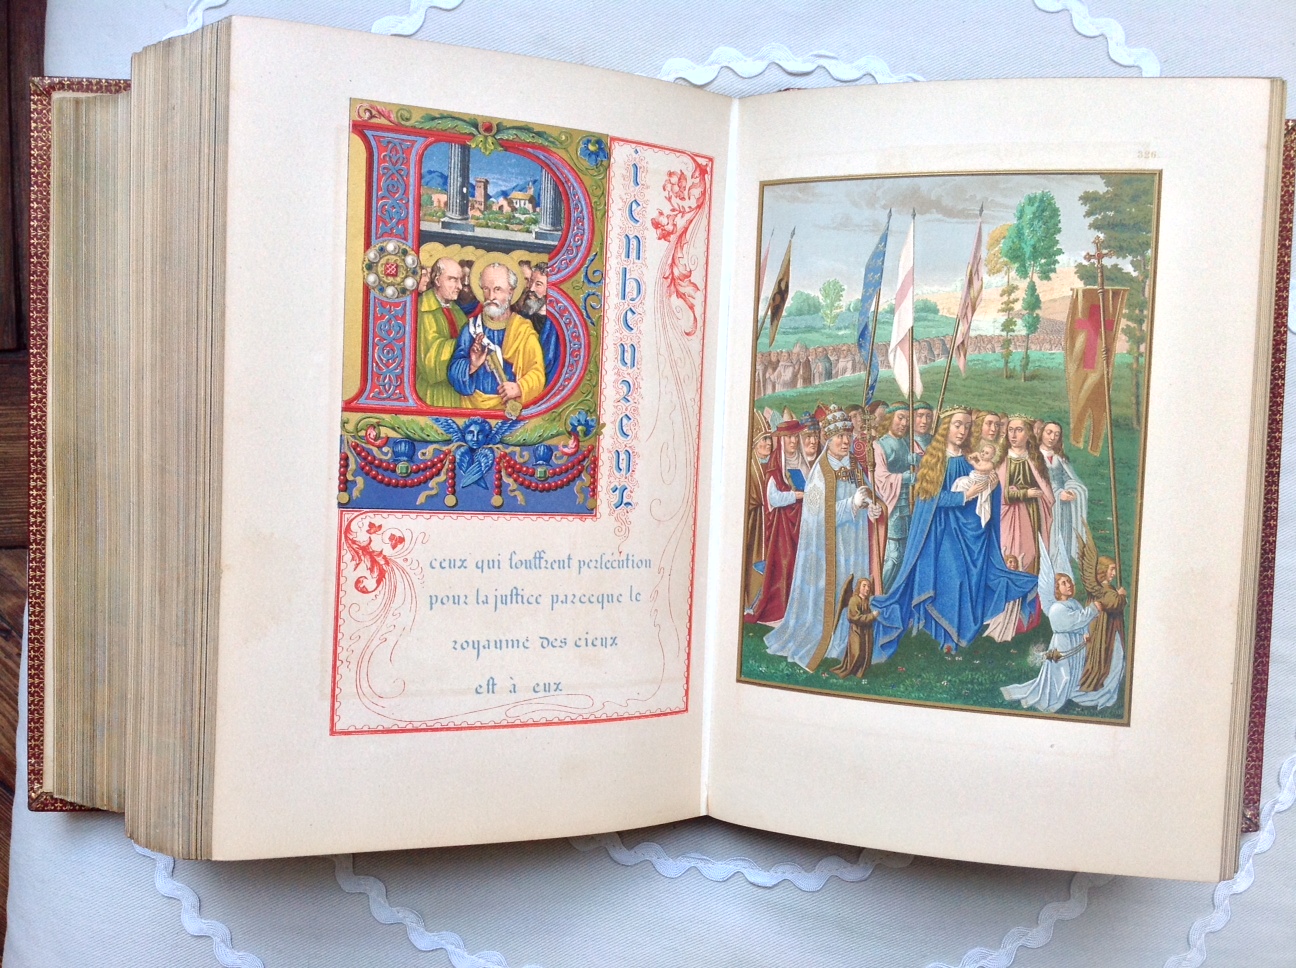 Bienheureux
ceux qui souffrent persécution
pour la justice parceque le
royaume des cieux
est à eux
326